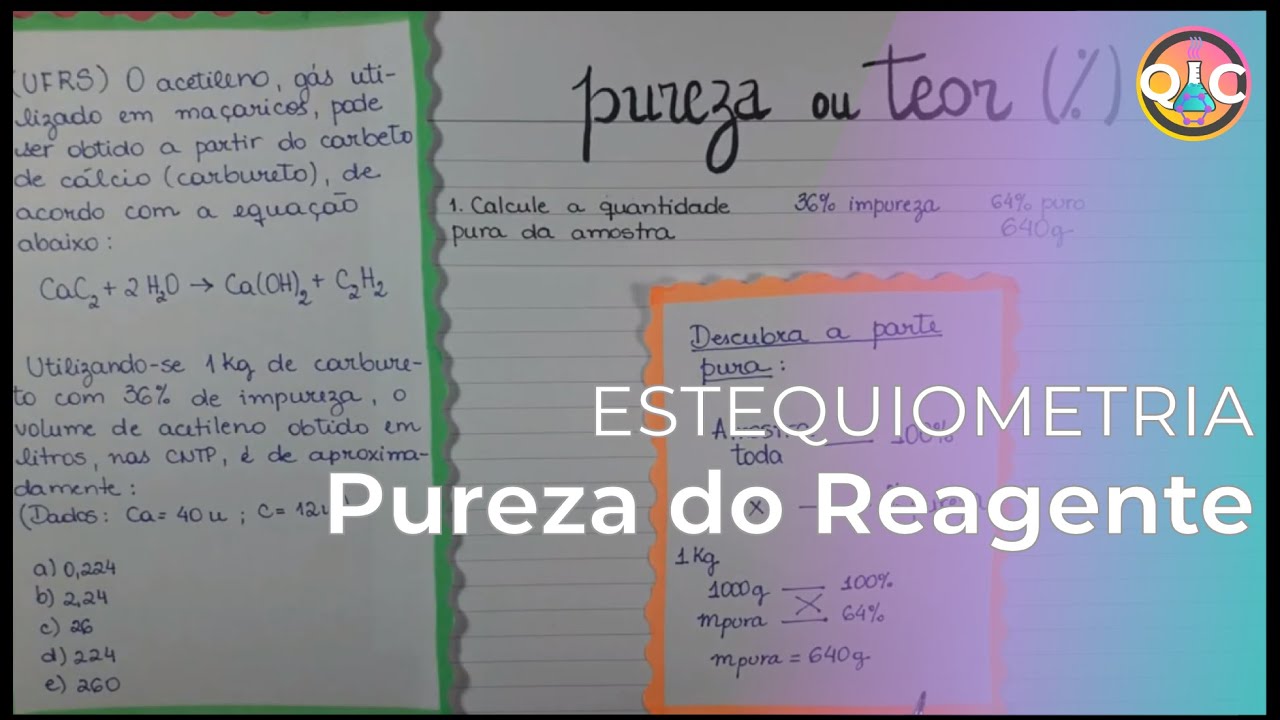 (UFRS) O acetileno, gás uti-
lizado em maçaricos, pode
ser obtido a partir do carbeto
de cálcio (carbureto), de
acordo com a equação
abaixo:
CaC₂ + 2 H₂O → Ca(OH)₂ + C₂H₂
Utilizando-se 1kg de carbure-
to com 36% de impureza, o
volume de acetileno obtido em
litros, nas CNTP, é de aproxima-
damente:
(Dados: Ca = 40 u ; C = 12
a) 0,224
b) 2,24
c) 26
d) 224
e) 260
pureza ou teor (%)
QC
1. Calcule a quantidade 36% impureza 64% puro
pura da amostra 640g
Descubra a parte
pura:
ESTEQUIOMETRIA
Amostra 100%
toda
Pureza do Reagente
x
1 Kg
1000g 100%
mpura 64%
mpura = 640g